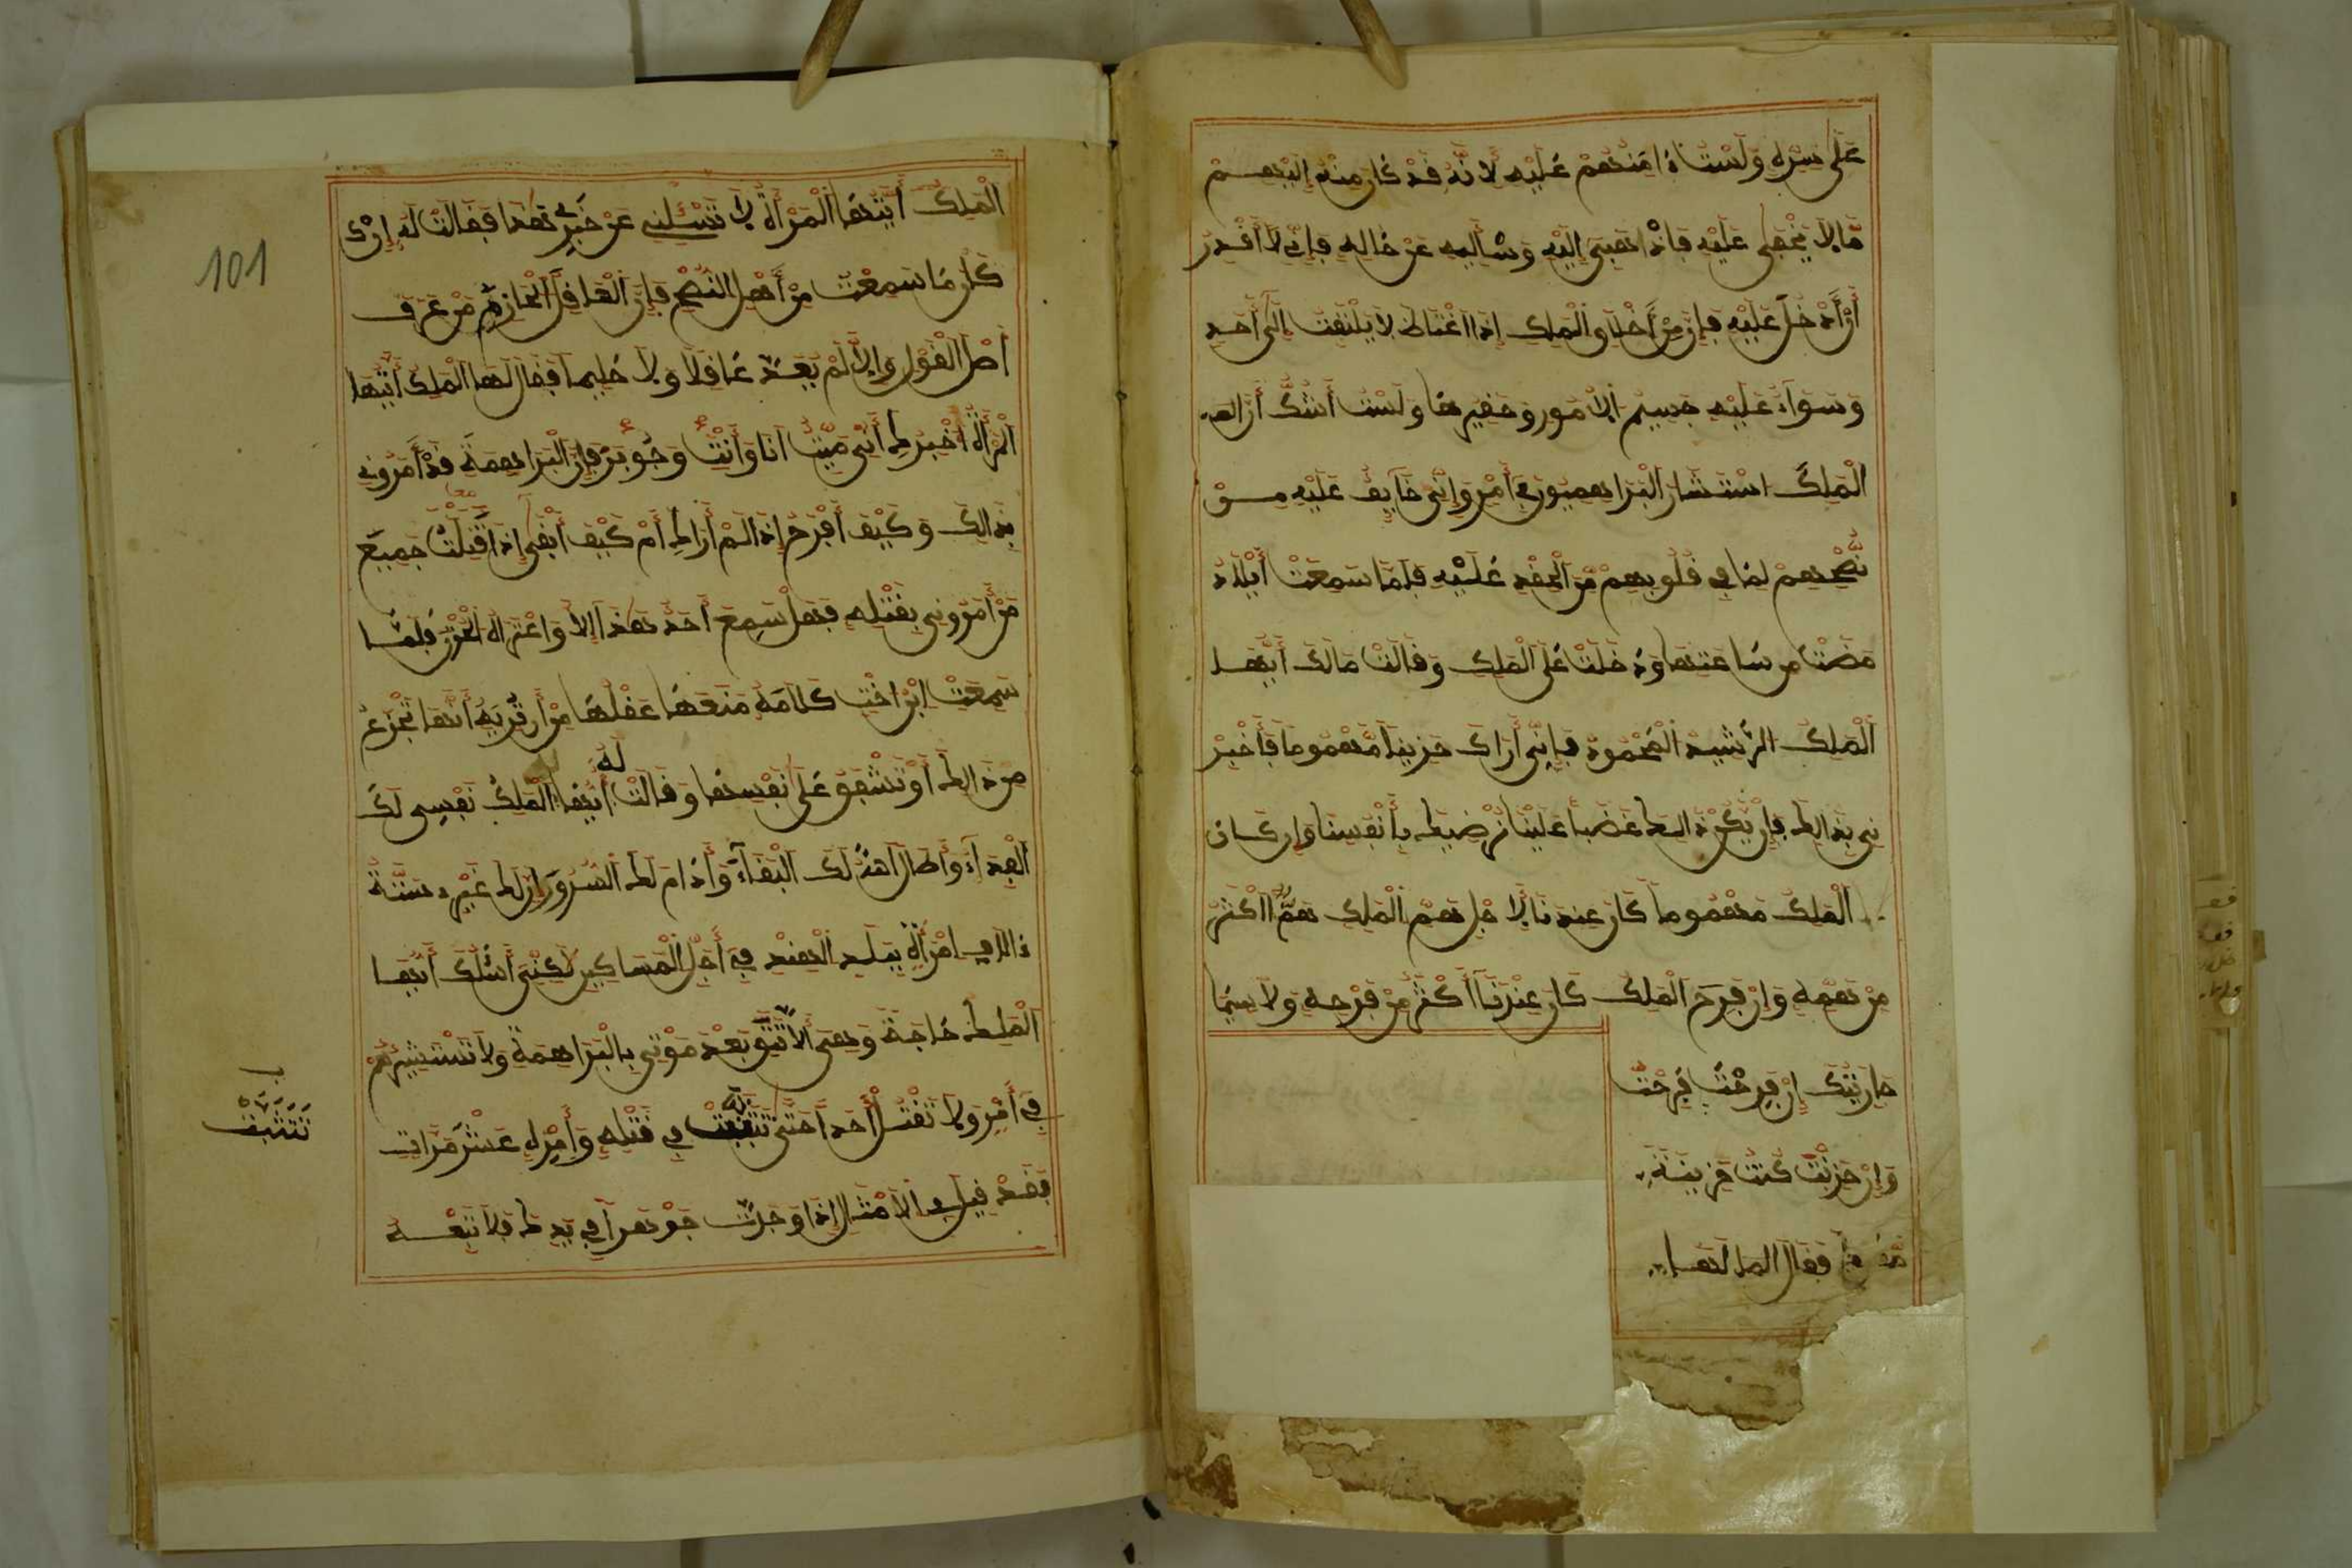 على سره ولست ءامنهم عليه لانه قد كان منه إليهم
ما لا يخفى عليه فاذهبي إليه وسأليه عن حاله فإني لا أقدر
أن أدخل عليه فإن من أخلاق الملك إذا اغتاظ لا يلتفت إلى أحد
وسواء عليه جسيم الأمور وحقيرها ولست أشك أن
الملك استشار البراهميون في أمر وإني خايف عليه من
نصحهم لما في قلوبهم من الحقد عليه فلما سمعت أيلاد
مضت من ساعتها ودخلت على الملك وقالت مالك أيها
الملك الرشيد المحمود فإني أراك حزينا مهموما فأخبر
ني بذالك فإن يكن ذالك غضبا علينا نرضيك بأنفسنا وإن كان
الملك مهموما كان عندنا لاجل هم الملك هم أكثر
من همه وإن فرح الملك كان عندنا أكثر من فرحه ولا سيما
جاريتك إن فرحت فرحت
وإن حزنت كنت حزينة
فقال الملك لها
الملك أيتها المرأة لا تسئليني عن خبري هذا فقالت له إن
كان ما سمعت من أهل النصح فإن العاقل الحازم من عرف
أصل القول وإلا لم يعد عاقلا ولا حليما فقال لها الملك أيتها
المرأة أخبرك أني ميت أنا وأنت وجوبر فإن البراهمة قد أمروني
بذالك وكيف أفرح إذا لم أراك أم كيف أبقى إذا قتلت جميع
من أمروني بقتله فهل سمع أحد هذا إلا واعتراه الحزن فلما
سمعت ابراخت كلامه منعها عقلها من أن تريه أنها تجزع
من ذالك أو تشفق على نفسها وقالت له أيها الملك نفسي لك
الفداء وأطال الله لك البقاء وأدام لك السرور إن لك غير ستة
ءالاف امرأة ببلد الهند في أجل المساكين لكني أسئلك أيها
الملك حاجة وهي ألا تثق بعد موتي بالبراهمة ولا تستشيرهم
في أمر ولا تقتل أحدا حتى تتثبت في قتله وأمره عشر مرات
فقد قيل في الأمثال إذا وجدت جوهرا في يدك فلا تبعه
تتثبت
101